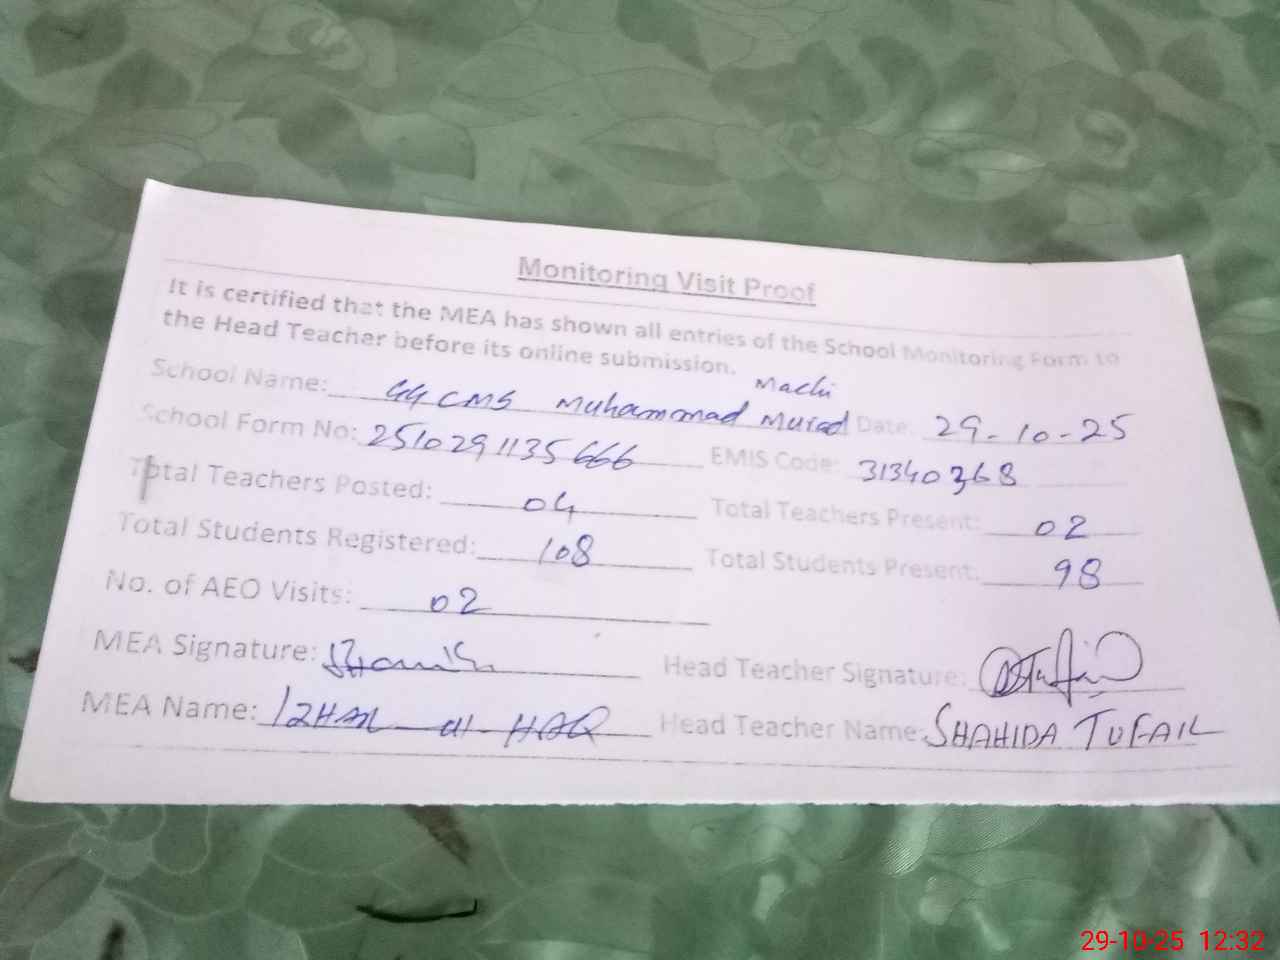 Monitoring Visit Proof
It is certified that the MEA has shown all entries of the School Monitoring Form to
the Head Teacher before its online submission.
School Name: GGCMS Muhammad Murad Machi Date: 29-10-25
School Form No: 2510291135666 EMIS Code: 31340368
Total Teachers Posted: 04 Total Teachers Present: 02
Total Students Registered: 108 Total Students Present: 98
No. of AEO Visits: 02
MEA Signature: Head Teacher Signature:
MEA Name: IZHAR-ul-HAQ Head Teacher Name: SHAHIDA TUFAIL
29-10-25 12:32